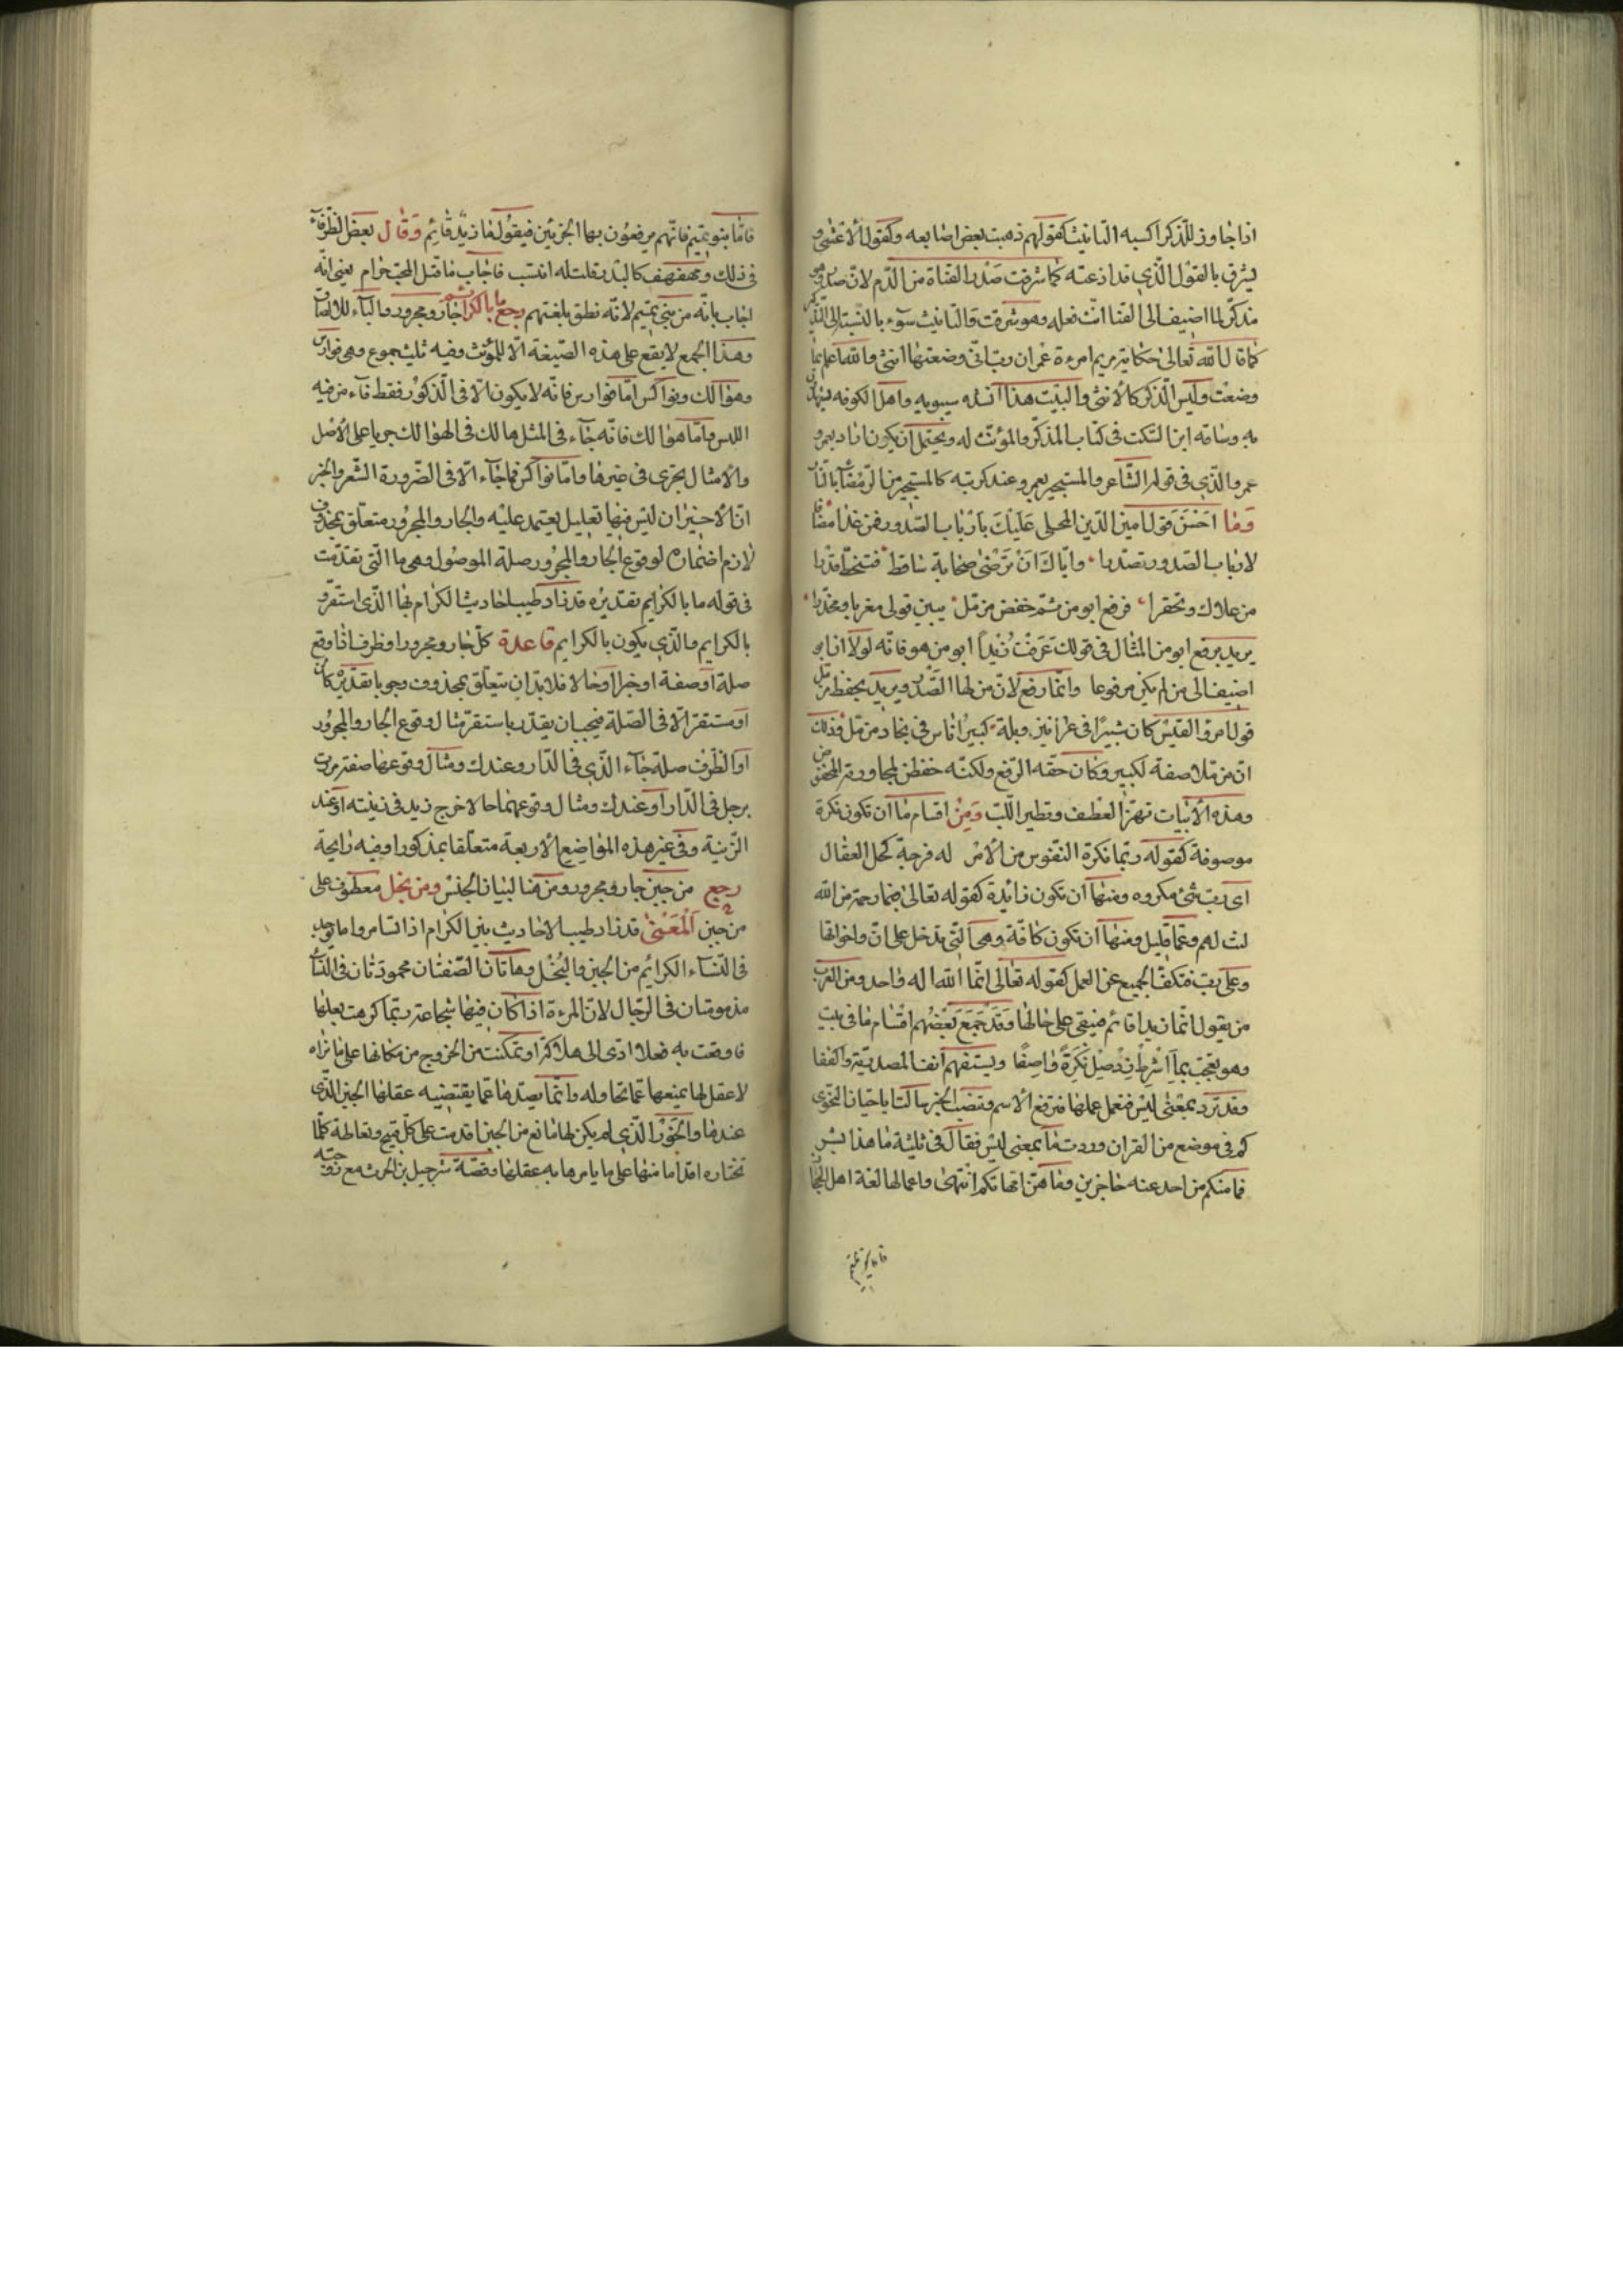 اذا جاوز للذكر اكسبه التانيث كقولهم ذهبت بعض اصابعه وكقول الاعشى و
يشرق بالقول الذي قد اذعته كما شرقت صدر القناة من الدم لان صدر وهو
مذكر لما اضيف الى القنا انث فعله وهو شرقت والتانيث سوء بالنسبة الى التذكير
كما قال الله تعالى حكاية مريم امرءة عمران رب اني وضعتها انثى والله اعلم بما
وضعت وليس الذكر كالانثى والبيت هذا انشده سيبويه واهل الكوفه
به وساقه ابن السكت في كتاب المذكر والمؤنث له ويحتمل ان يكون اراد بعمرو
عمرو الذي في قول الشاعر والمستجير بعمرو عند كربته كالمستجير من الرمضاء بالنار
وما احسن قول امين الدين المحلى عليك بارباب الصدور فمن غدا مضافا
لارباب الصدور تصدرا واياك ان ترضى صحابة ساقط فتنحط قدرا
من علاك وتحقرا فرفع ابو من ثم خفض مزمل يبين قولى مغريا ومحذرا
يريد برفع ابو من المثال في قولك عرفت زيدا ابو من هو فانه لولا ان ابو
اضيف الى من لم يكن مرفوعا وانما رفع لان من لها الصدر ويريد بخفض مزمل
قول امرؤ القيس كان ثبيرا في عرانين وبله كبير اناس في بجاد مزمل فذلك
ان مزملا صفة لكبير وكان حقه الرفع ولكنه خفض لمجاورة المخفوض
وهذه الابيات تهز العطف وتطير اللب ومن اقسام ما ان تكون نكرة
موصوفة كقوله ربما تكره النفوس من الامر له فرجة كحل العقال
اى رب شئ مكروه ومنها ان تكون زائدة كقوله تعالى فبما رحمة من الله
لنت لهم وعما قليل ومنها ان تكون كافة وهي التي تدخل على ان واخواتها
وعلى رب فتكف الجميع عن العمل كقوله تعالى انما الله اله واحد ومن العرب
من يقول انما زيدا قائم فيبقى على حالها وقد جمع بعضهم اقسام ما في بيت
وهو تعجب بما اشرط زد صل نكرة واصفا ويستفهم انف المصدرية واكففا
وقد ترد بمعنى ليس فتعمل عملها فترفع الاسم وتنصب الخبر
كم في موضع من القران وردت ما بمعنى ليس فقال في ثلثة ما هذا بشرا
فما منكم من احد عنه حاجزين وما هن امهاتكم انتهى واعمالها لغة اهل الحجاز
فاما بنو تميم
فاما بنو تميم فانهم يرفعون بها الجزئين فيقول ما زيد قائم وقال بعض الظرفاء
في ذلك ومهفهف كالبدر قلت له انتسب فاجاب ما قتل المحب حرام يعني انه
اجاب بانه من بني تميم لانه نطق بلغتهم رجع ما بالكرائم جار ومجرور والباء للالصاق
وهذا الجمع لا يقع على هذه الصيغة الا للمؤنث وفيه ثليث جموع وهي فوارس
وهوالك ونواكس اما فوارس فانه لا يكون الا في الذكور فقط فاء من فيه
اللبس واما هوالك فانه جاء في المثل هالك في الهوالك جريا على الاصل
والامثال يجرى في غيرها واما نواكس فما جاء الا في الضرورة الشعر والجز
ان الاخيران ليس فيها تعليل يعتمد عليه والجار والمجرور متعلق بمحذوف
لازم اضماره لوقوع الجار والمجرور صلة الموصول وهي ما التي تقدمت
في قوله ما بالكرايم تقديره قد زاد طيب احاديث الكرام بها الذي استقر
بالكرايم والذي يكون بالكرايم قاعدة كل جار ومجرور او ظرف اذا وقع
صلة او صفة او خبرا او حالا فلا بد ان يتعلق بمحذوف وجوبا تقديره كان
او مستقر الا في الصلة فيجب ان يقدر باستقر مثال وقوع الجار والمجرور
او الظرف صلة جاء الذي في الدار وعندك ومثال وقوعها صفة مررت
برجل في الدار او عندك ومثال وقوعهما حالا خرج زيد في زينته او عند
الزينة وفي غير هذه المواضع الاربعة متعلقا بمذكور او فيه رايحة
رجع من جبن جار ومجرور ومن هنا لبيان الجنس ومن بخل معطوف على
من جبن المعنى قد زاد طيب الاحاديث بين الكرام اذا تسامروا ما يوجد
في النساء الكرائم من الجبن والبخل وهاتان الصفتان محمودتان في النساء
مذمومتان في الرجال لان المرءة اذا كان فيها شجاعة ربما كرهت بعلها
فاوقعت به فعلا ادى الى هلاكه او تمكنت من الخروج من مكانها على ما تراه
لا عقل لها يمنعها عما تحاوله وانما يصدها عما يقتضيه عقلها الجبن الذي
عندها والخور الذي لم يكن لها مانع من الجبن اقدمت على كل قبيح وتعاطت كلما
تختاره اقداما منها على ما يامرها به عقلها وقصة شرحبيل بن الحرث مع زوجته